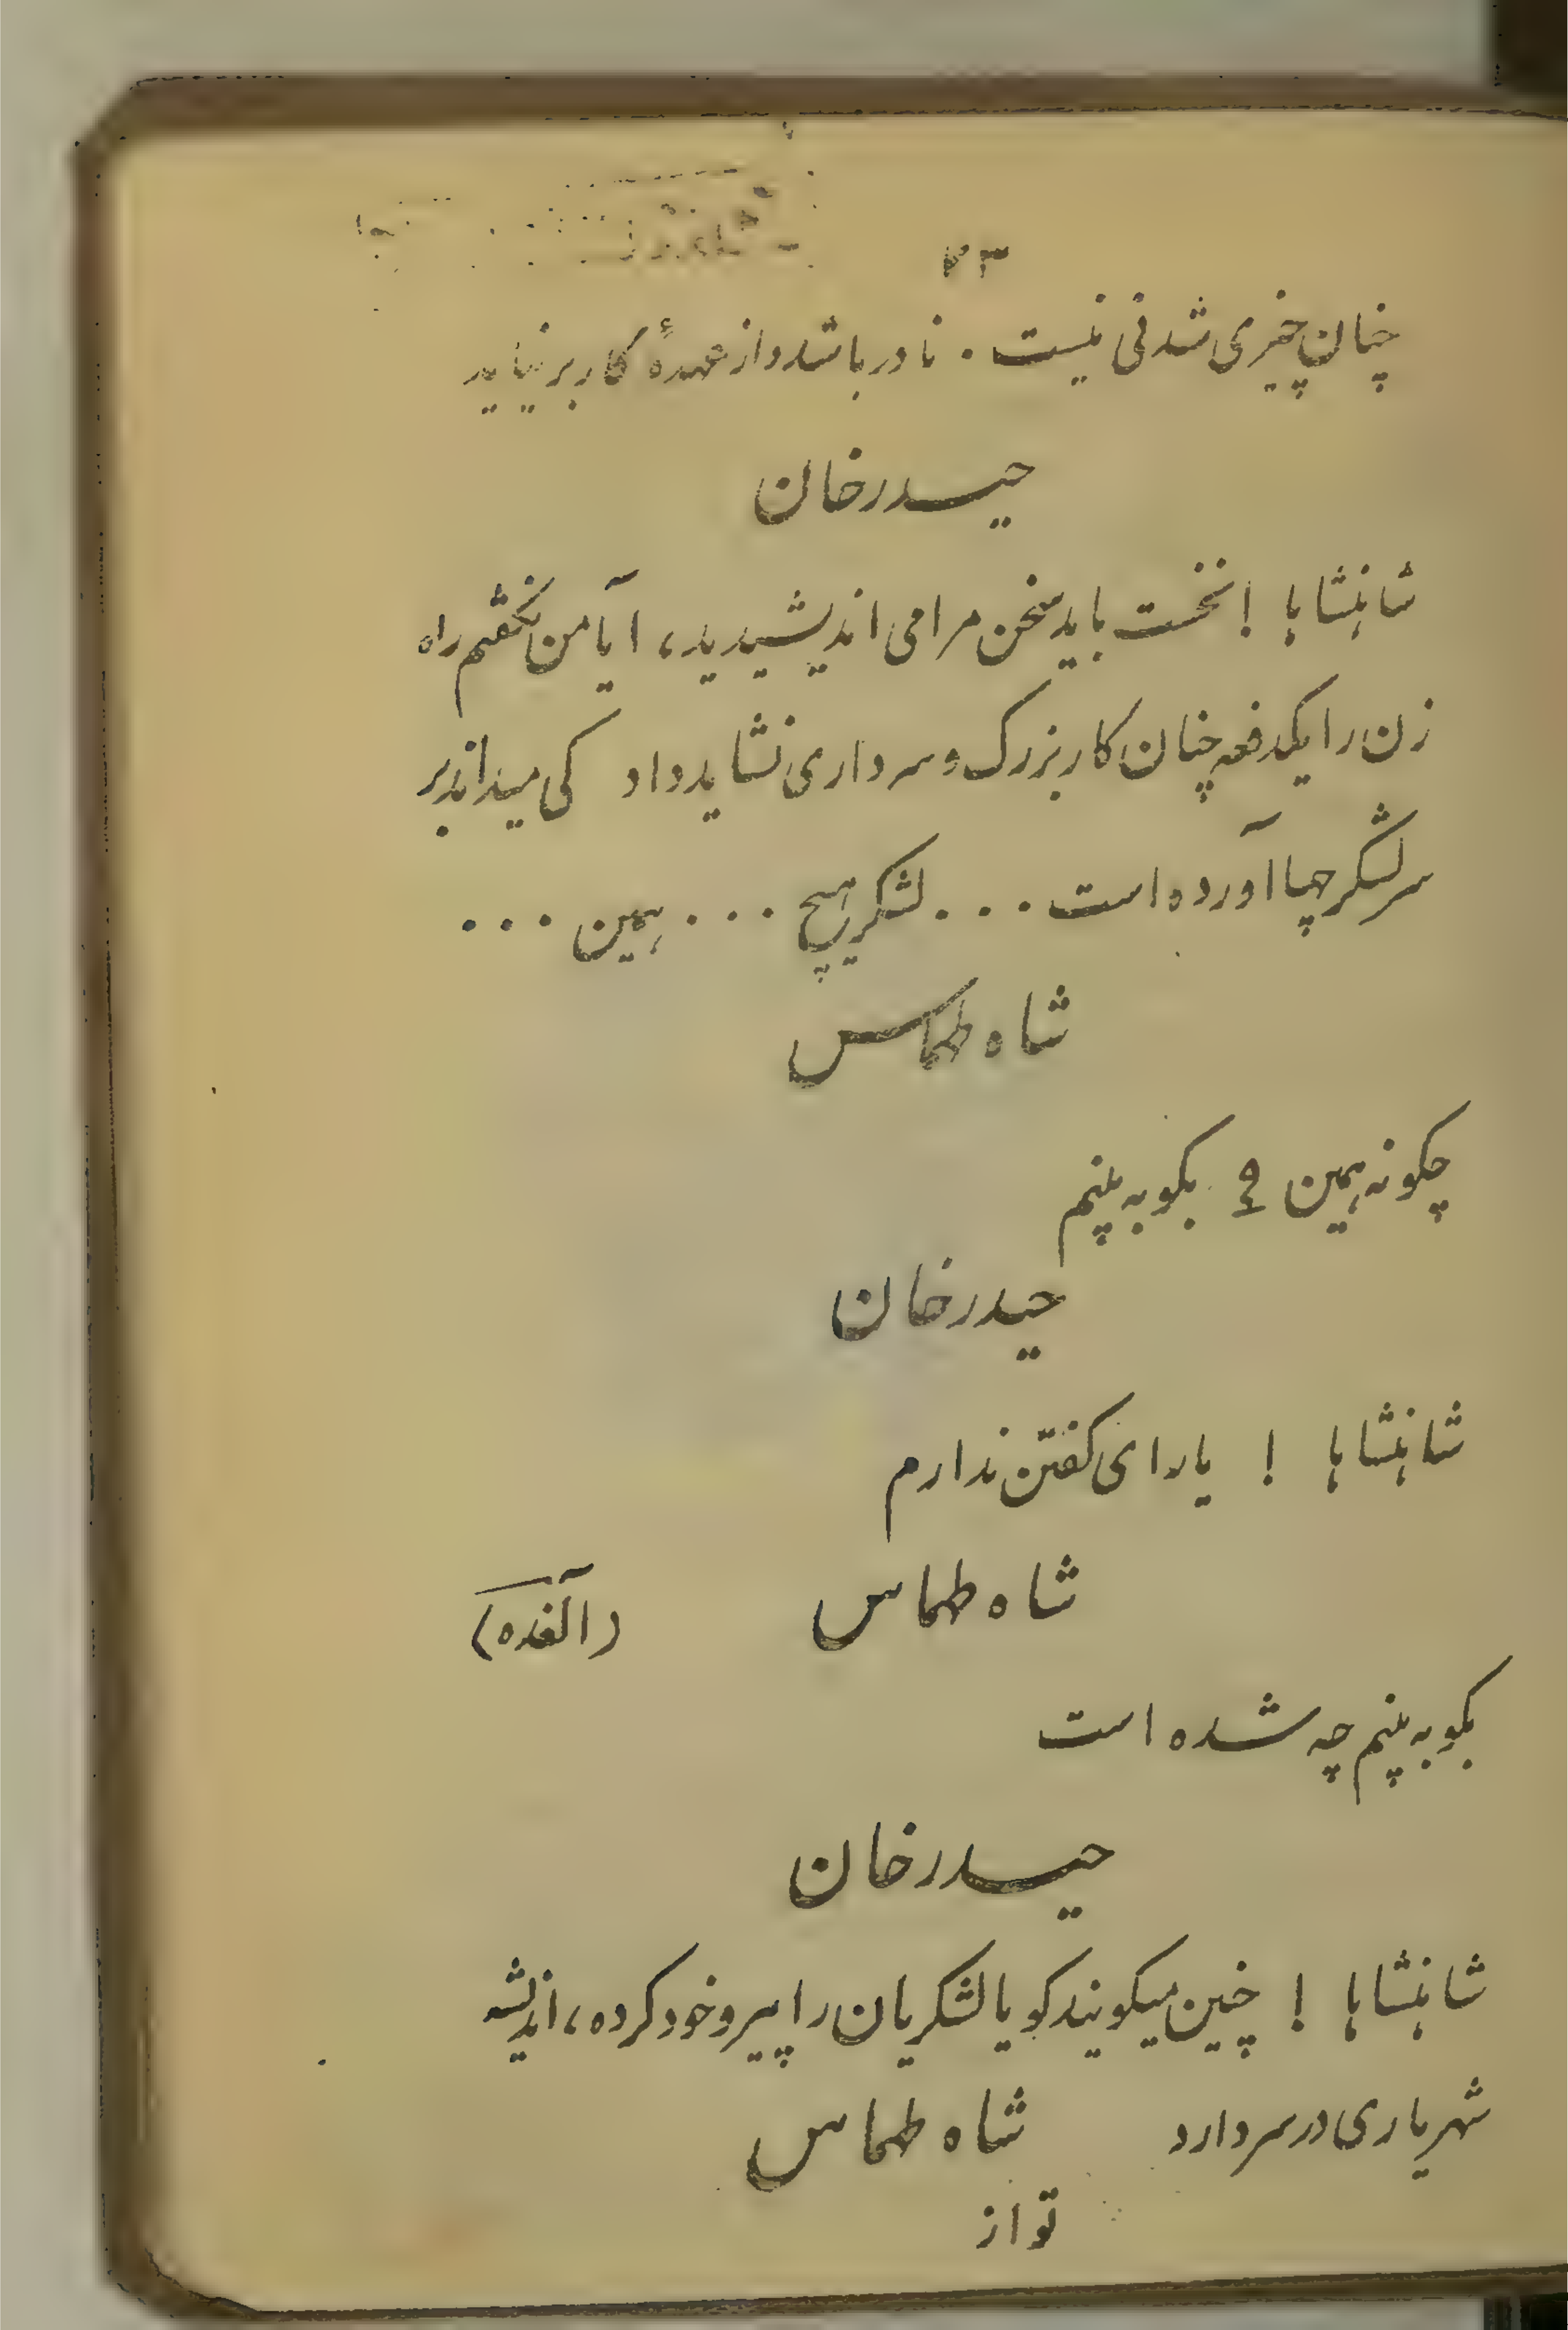 ۴۳
چنان چیزی شدنی نیست . نادر باشد و از عهدهٔ کار بر نیاید
حیدرخان
شاهنشاها ! نخست باید سخن مرا می اندیشیدید، آیا من نگفتم راه
زن را یکدفعه چنان کار بزرک و سرداری نشاید داد کی میداند بر
سر لشکر چها آورده است . . . لشکر هیچ . . . همین . . .
شاه طهماس
چکونه همین ؟ بکو به بینم
حیدرخان
شاهنشاها ! یارای کفتن ندارم
شاه طهماس (آلغده)
بکو به بینم چه شده است
حیدرخان
شاهنشاها ! چنین میکویند کویا لشکریان را پیرو خود کرده، اندیشه
شهریاری در سر دارد شاه طهماس
تو از